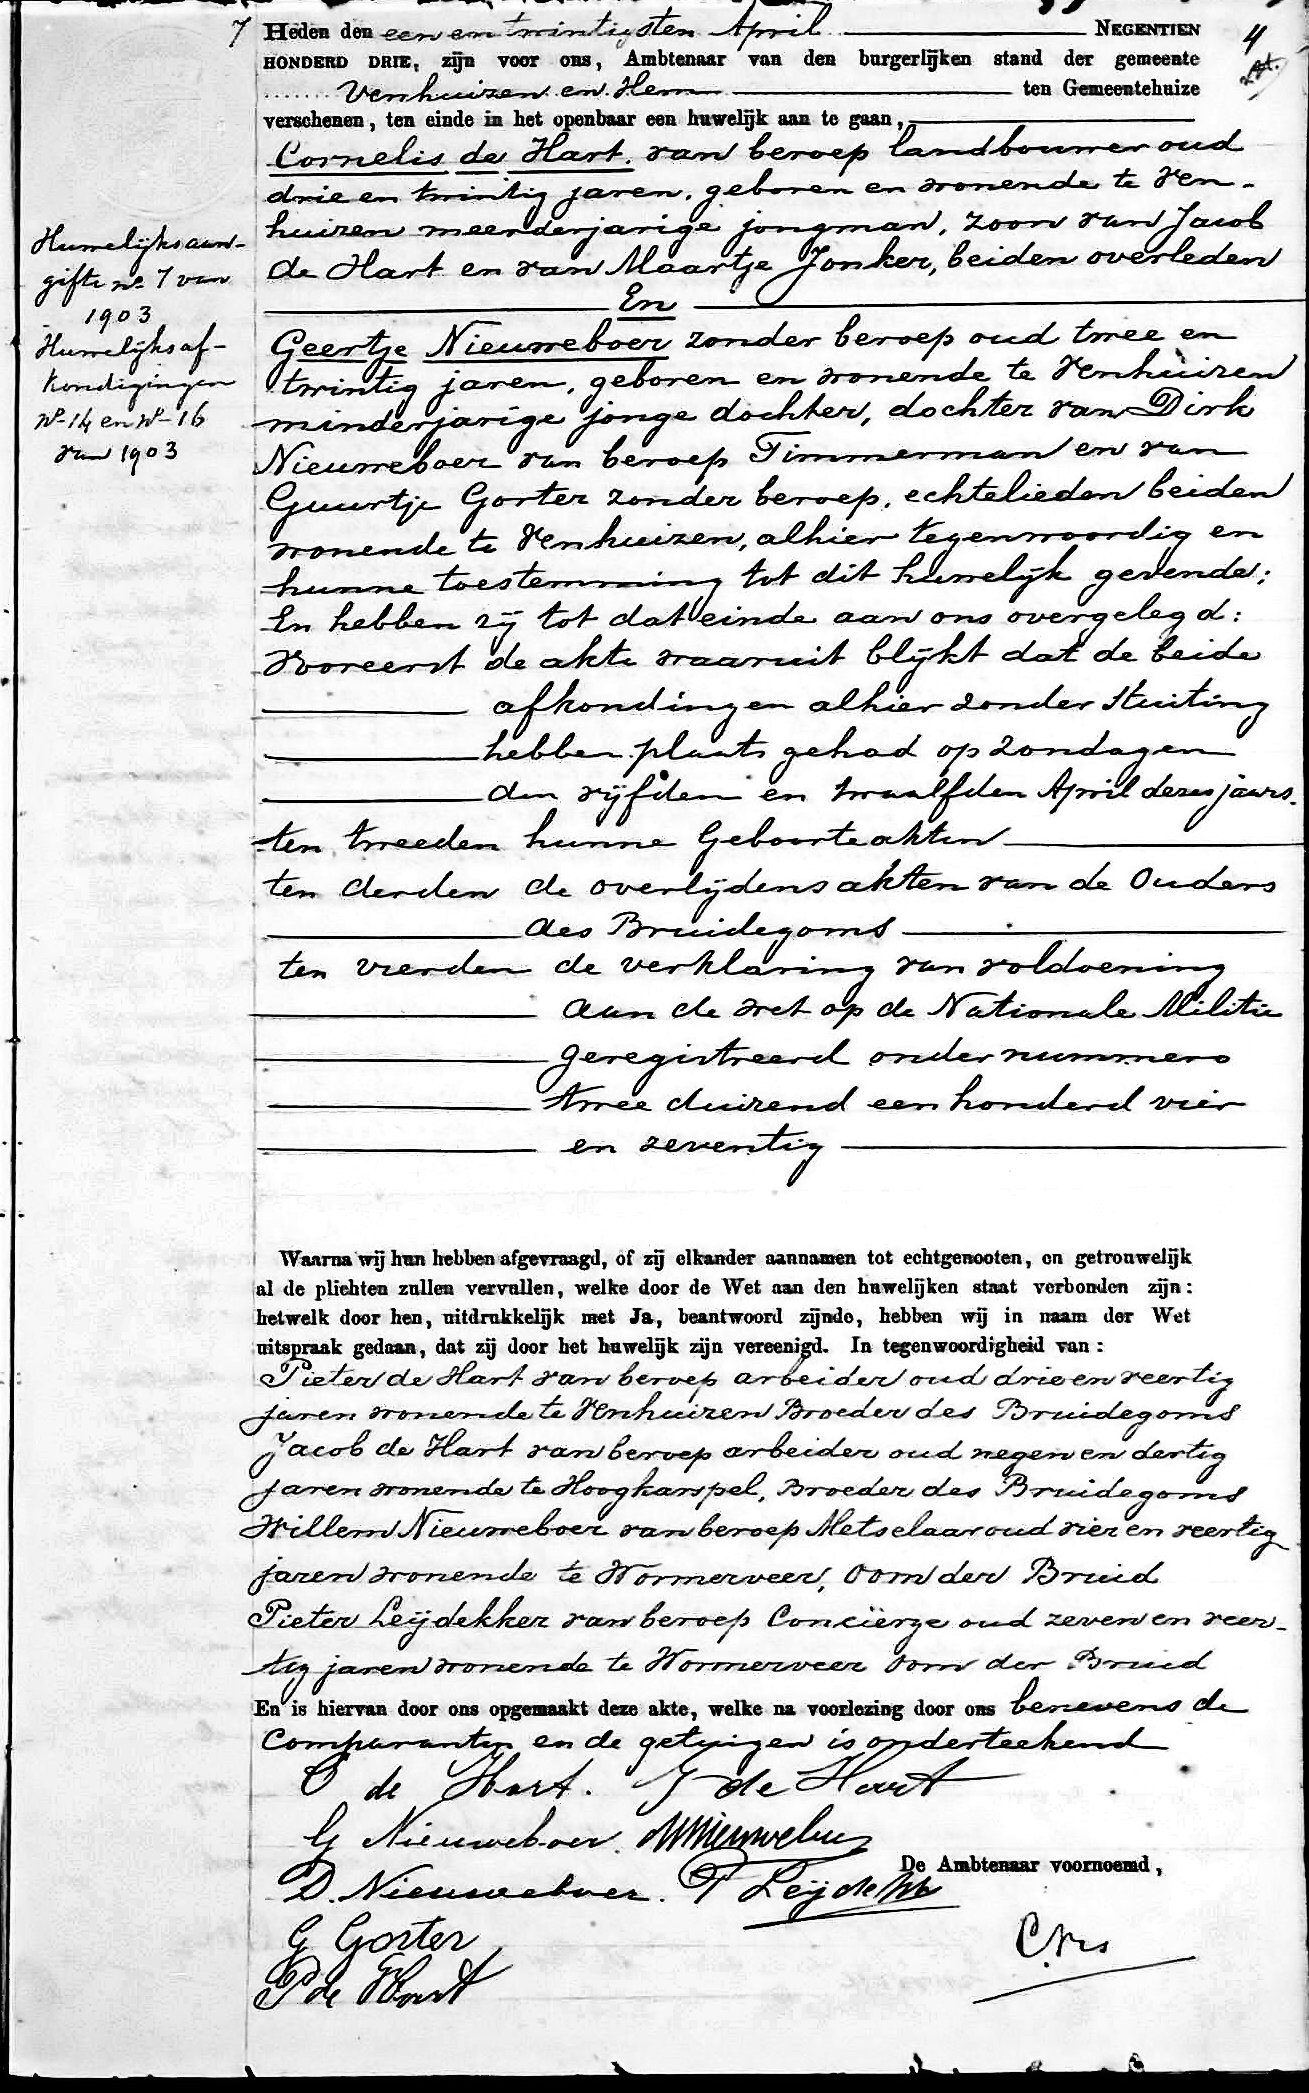 7 Heden den een en twintigsten April NEGENTIEN 4
HONDERD DRIE, zijn voor ons, Ambtenaar van den burgerlijken stand der gemeente
Venhuizen en Hem ten Gemeentehuize
verschenen, ten einde in het openbaar een huwelijk aan te gaan,
Cornelis de Hart. van beroep landbouwer oud
drie en twintig jaren, geboren en wonende te Ven-
huizen meerderjarige jongman, zoon van Jacob
de Hart en van Maartje Jonker, beiden overleden
En
Geertje Nieuweboer zonder beroep oud twee en
twintig jaren, geboren en wonende te Venhuizen
minderjarige jonge dochter, dochter van Dirk
Nieuweboer van beroep Timmerman en van
Guurtje Gorter zonder beroep, echtelieden beiden
wonende te Venhuizen, alhier tegenwoordig en
hunne toestemming tot dit huwelijk gevende;
En hebben zij tot dat einde aan ons overgelegd:
Vooreerst de akte waaruit blijkt dat de beide
afkondingen alhier zonder stuiting
hebben plaats gehad op Zondagen
den vijfden en twaalfden April dezes jaars.
ten tweeden hunne Geboorteakten
ten derden de overlijdensakten van de Ouders
des Bruidegoms
ten vierden de verklaring van voldoening
aan de wet op de Nationale Militie
geregistreerd onder nummero
twee duizend een honderd vier
en zeventig
Huwelijksaan-
gifte no 7 van
1903
Huwelijksaf-
kondigingen
No 14 en No 16
van 1903
Waarna wij hun hebben afgevraagd, of zij elkander aannamen tot echtgenooten, en getrouwelijk
al de plichten zullen vervullen, welke door de Wet aan den huwelijken staat verbonden zijn:
hetwelk door hen, uitdrukkelijk met Ja, beantwoord zijnde, hebben wij in naam der Wet
uitspraak gedaan, dat zij door het huwelijk zijn vereenigd. In tegenwoordigheid van:
Pieter de Hart van beroep arbeider oud drie en veertig
jaren wonende te Venhuizen Broeder des Bruidegoms
Jacob de Hart van beroep arbeider oud negen en dertig
jaren wonende te Hoogkarspel, Broeder des Bruidegoms
Willem Nieuweboer van beroep Metselaar oud vier en veertig
jaren wonende te Wormerveer, Oom der Bruid
Pieter Leijdekker van beroep Conciërge oud zeven en veer-
tig jaren wonende te Wormerveer Oom der Bruid
En is hiervan door ons opgemaakt deze akte, welke na voorlezing door ons benevens de
Comparanten en de getuigen is onderteekend
C de Hart. J de Hart
G Nieuweboer. W Nieuweboer
D. Nieuweboer. P Leijdekker
De Ambtenaar voornoemd,
G Gorter
P de Hart